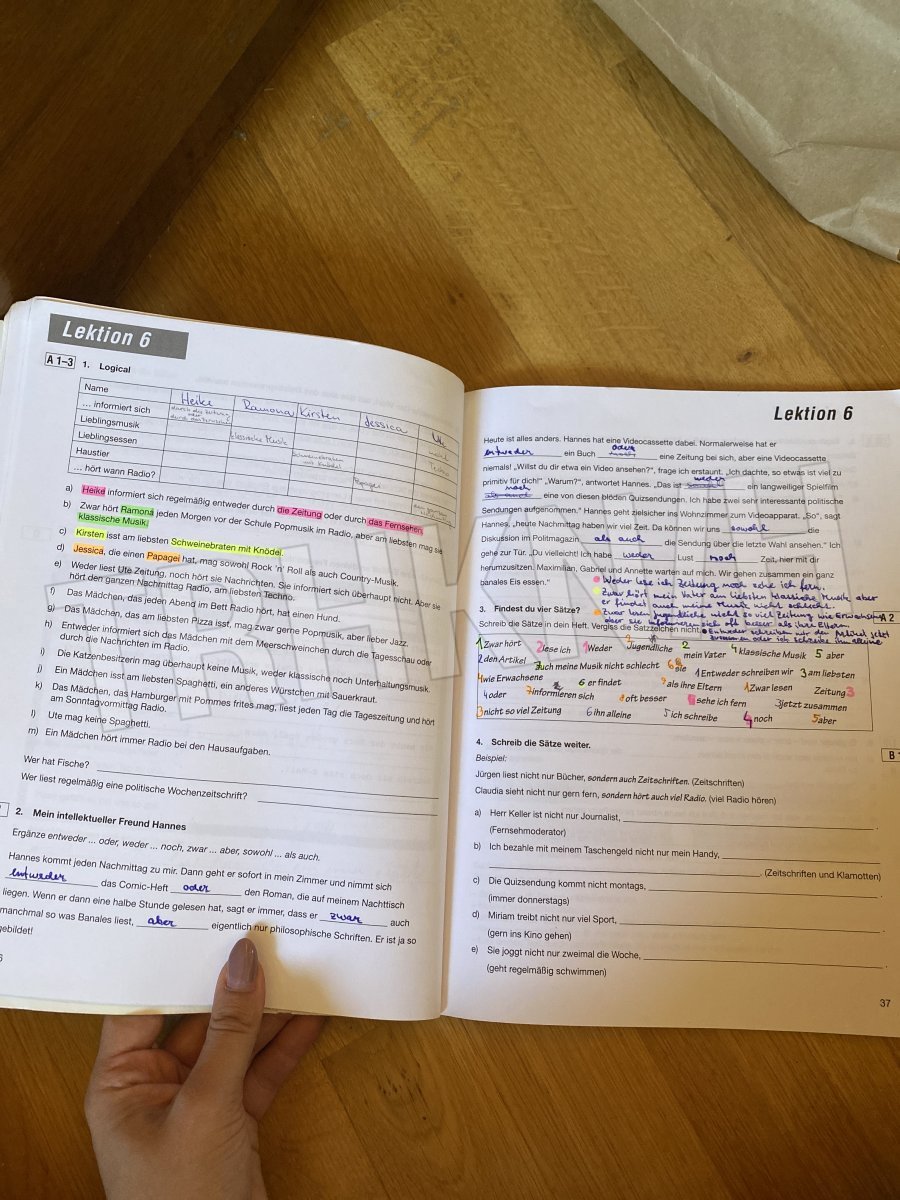 Lektion 6
A 1–3 1. Logical
Name Heike Ramona Kirsten Jessica Ute
... informiert sich durch die Zeitung oder durch das Fernsehen
Lieblingsmusik klassische Musik Techno
Lieblingsessen Schweinebraten mit Knödel
Haustier Papagei
... hört wann Radio?
a) Heike informiert sich regelmäßig entweder durch die Zeitung oder durch das Fernsehen.
b) Zwar hört Ramona jeden Morgen vor der Schule Popmusik im Radio, aber am liebsten mag sie
klassische Musik.
c) Kirsten isst am liebsten Schweinebraten mit Knödel.
d) Jessica, die einen Papagei hat, mag sowohl Rock 'n' Roll als auch Country-Musik.
e) Weder liest Ute Zeitung, noch hört sie Nachrichten. Sie informiert sich überhaupt nicht. Aber sie
hört den ganzen Nachmittag Radio, am liebsten Techno.
f) Das Mädchen, das jeden Abend im Bett Radio hört, hat einen Hund.
g) Das Mädchen, das am liebsten Pizza isst, mag zwar gerne Popmusik, aber lieber Jazz.
h) Entweder informiert sich das Mädchen mit dem Meerschweinchen durch die Tagesschau oder
durch die Nachrichten im Radio.
i) Die Katzenbesitzerin mag überhaupt keine Musik, weder klassische noch Unterhaltungsmusik.
j) Ein Mädchen isst am liebsten Spaghetti, ein anderes Würstchen mit Sauerkraut.
k) Das Mädchen, das Hamburger mit Pommes frites mag, liest jeden Tag die Tageszeitung und hört
am Sonntagvormittag Radio.
l) Ute mag keine Spaghetti.
m) Ein Mädchen hört immer Radio bei den Hausaufgaben.
Wer hat Fische?
Wer liest regelmäßig eine politische Wochenzeitschrift?
2. Mein intellektueller Freund Hannes
Ergänze entweder ... oder, weder ... noch, zwar ... aber, sowohl ... als auch.
Hannes kommt jeden Nachmittag zu mir. Dann geht er sofort in mein Zimmer und nimmt sich
entweder das Comic-Heft oder den Roman, die auf meinem Nachttisch
liegen. Wenn er dann eine halbe Stunde gelesen hat, sagt er immer, dass er zwar auch
manchmal so was Banales liest, aber eigentlich nur philosophische Schriften. Er ist ja so
gebildet!
6
Lektion 6
Heute ist alles anders. Hannes hat eine Videocassette dabei. Normalerweise hat er
entweder ein Buch oder eine Zeitung bei sich, aber eine Videocassette
niemals! „Willst du dir etwa ein Video ansehen?“, frage ich erstaunt. „Ich dachte, so etwas ist viel zu
primitiv für dich!“ „Warum?“, antwortet Hannes. „Das ist weder ein langweiliger Spielfilm
noch eine von diesen blöden Quizsendungen. Ich habe zwei sehr interessante politische
Sendungen aufgenommen.“ Hannes geht zielsicher ins Wohnzimmer zum Videoapparat. „So“, sagt
Hannes, „heute Nachmittag haben wir viel Zeit. Da können wir uns sowohl die
Diskussion im Politmagazin als auch die Sendung über die letzte Wahl ansehen.“ Ich
gehe zur Tür. „Du vielleicht! Ich habe weder Lust noch Zeit, hier mit dir
herumzusitzen. Maximilian, Gabriel und Annette warten auf mich. Wir gehen zusammen ein ganz
banales Eis essen.“
Weder lese ich Zeitung noch sehe ich fern.
Zwar hört mein Vater am liebsten klassische Musik aber
er findet auch meine Musik nicht schlecht.
Zwar lesen Jugendliche nicht so viel Zeitung wie Erwachsene
aber sie informieren sich oft besser als ihre Eltern
Entweder schreiben wir den Artikel jetzt
zusammen oder ich schreibe ihn alleine
3. Findest du vier Sätze? A 2
Schreib die Sätze in dein Heft. Vergiss die Satzzeichen nicht.
1 Zwar hört 2 lese ich 1 Weder 3 Jugendliche 2 mein Vater 4 klassische Musik 5 aber
2 den Artikel 7 auch meine Musik nicht schlecht 6 sie 1 Entweder schreiben wir 3 am liebsten
4 wie Erwachsene 6 er findet 9 als ihre Eltern 1 Zwar lesen Zeitung 3
4 oder 7 informieren sich 8 oft besser 5 sehe ich fern 3 jetzt zusammen
3 nicht so viel Zeitung 6 ihn alleine 5 ich schreibe 4 noch 5 aber
4. Schreib die Sätze weiter. B 1
Beispiel:
Jürgen liest nicht nur Bücher, sondern auch Zeitschriften. (Zeitschriften)
Claudia sieht nicht nur gern fern, sondern hört auch viel Radio. (viel Radio hören)
a) Herr Keller ist nicht nur Journalist, .
(Fernsehmoderator)
b) Ich bezahle mit meinem Taschengeld nicht nur mein Handy,
. (Zeitschriften und Klamotten)
c) Die Quizsendung kommt nicht montags, .
(immer donnerstags)
d) Miriam treibt nicht nur viel Sport, .
(gern ins Kino gehen)
e) Sie joggt nicht nur zweimal die Woche, .
(geht regelmäßig schwimmen)
37